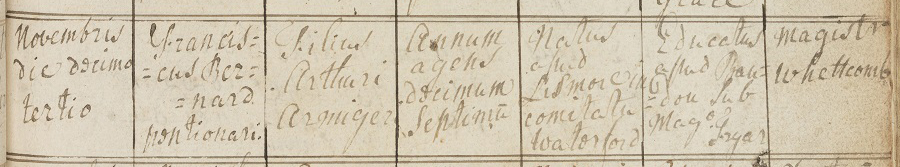 Novembris
die decimo
tertio
Francis=
=cus Ber=
=nard
pentionari:
Filius
Arthuri
Armiger
Annum
agens
decimum
Septimū
Natus
apud
Lismore in
comitatu
Waterford
Educatus
apud Ban=
=don sub
Mag.º Fryar
Magistr
Whettcomb